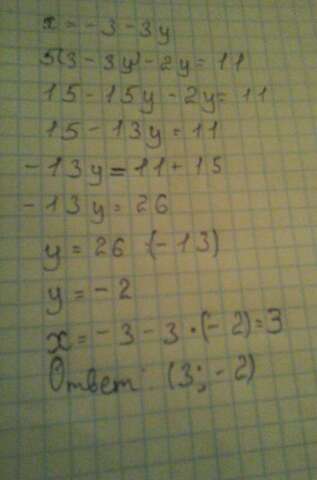 x = -3 - 3y
5(3 - 3y) - 2y = 11
15 - 15y - 2y = 11
15 - 13y = 11
-13y = 11 + 15
-13y = 26
y = 26 · (-13)
y = -2
x = -3 - 3 · (-2) = 3
Ответ: (3; -2)